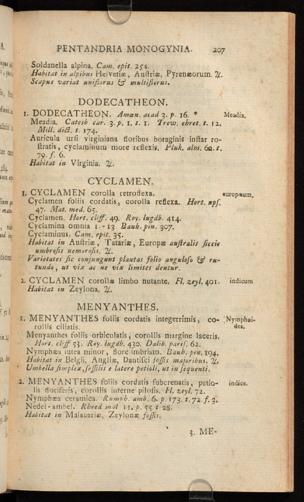 PENTANDRIA MONOGYNIA. 207
Soldanella alpina. Cam. epit. 251.
Habitat in alpibus Helvetiæ, Austriæ, Pyrenæorum. ♃.
Scapus variat uniflorus & multiflorus.
DODECATHEON.
1. DODECATHEON. Amœn. acad 3. p. 16. * Meadia.
Meadia. Catesb. car. 3. p. 1. t. 1. Trew. ehret. t. 12.
Mill. dict. t. 174.
Auricula ursi virginiana floribus boraginis instar ro-
stratis, cyclaminum more reflexis. Pluk. alm. 62. t.
79. f. 6.
Habitat in Virginia. ♃.
CYCLAMEN.
1. CYCLAMEN corolla retroflexa. europæum.
Cyclamen foliis cordatis, corolla reflexa. Hort. ups.
47. Mat. med. 65.
Cyclamen. Hort. cliff. 49. Roy. lugdb. 414.
Cyclamina omnia 1 - 13 Bauh. pin. 307.
Cyclaminus. Cam. epit. 35.
Habitat in Austriæ, Tatariæ, Europæ australis siccis
umbrosis nemorosis. ♃.
Varietates sic conjungunt plantas folio anguloso & ro-
tundo, ut vix ac ne vix limites dentur.
2. CYCLAMEN corollæ limbo nutante. Fl. zeyl. 401. indicum
Habitat in Zeylona. ♃.
MENYANTHES.
1. MENYANTHES foliis cordatis integerrimis, co- Nymphoi-
rollis ciliatis. des.
Menyanthes foliis orbiculatis, corollis margine laceris.
Hort. cliff 53. Roy. lugdb. 430. Dalib. paris. 62.
Nymphæa lutea minor, flore fimbriato. Bauh. pin. 194.
Habitat in Belgii, Angliæ, Dantisci fossis majoribus. ♃.
Umbella simplex, sessilis e latere petioli, ut in sequenti.
2. MENYANTHES foliis cordatis subcrenatis, petio- indica.
lis floriferis, corollis interne pilosis. Fl. zeyl. 72.
Nymphæa ceramica. Rumph. amb. 6. p. 173. t. 72 f. 3.
Nedel-ambel. Rheed mal 11. p. 55 t 28.
Habitat in Malabariæ, Zeylonæ fossis.
3. ME-